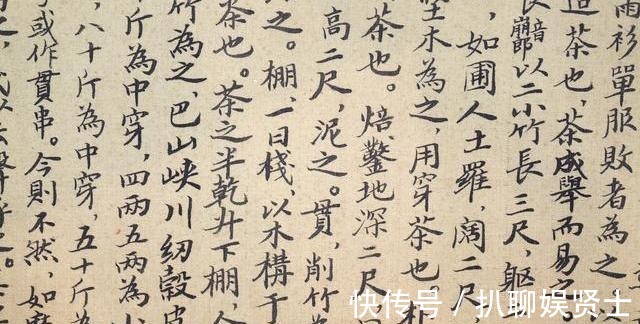 雨衫單服敗者為之
造茶也,茶成舉而易之
以二小竹長三尺,軀
,如圃人土羅,闊二尺
堅木為之,用穿茶也。
茶也。焙,鑿地深二尺
高二尺,泥之。貫,削竹為
之。棚,一曰棧,以木構于
茶也。茶之半乾廾下棚,
竹為之,巴山峽川紉穀皮
斤為中穿,四兩五兩為小
,八十斤為中穿,五十斤為
或作貫串。今則不然,如磨
快传号 / 扒聊娱贤士